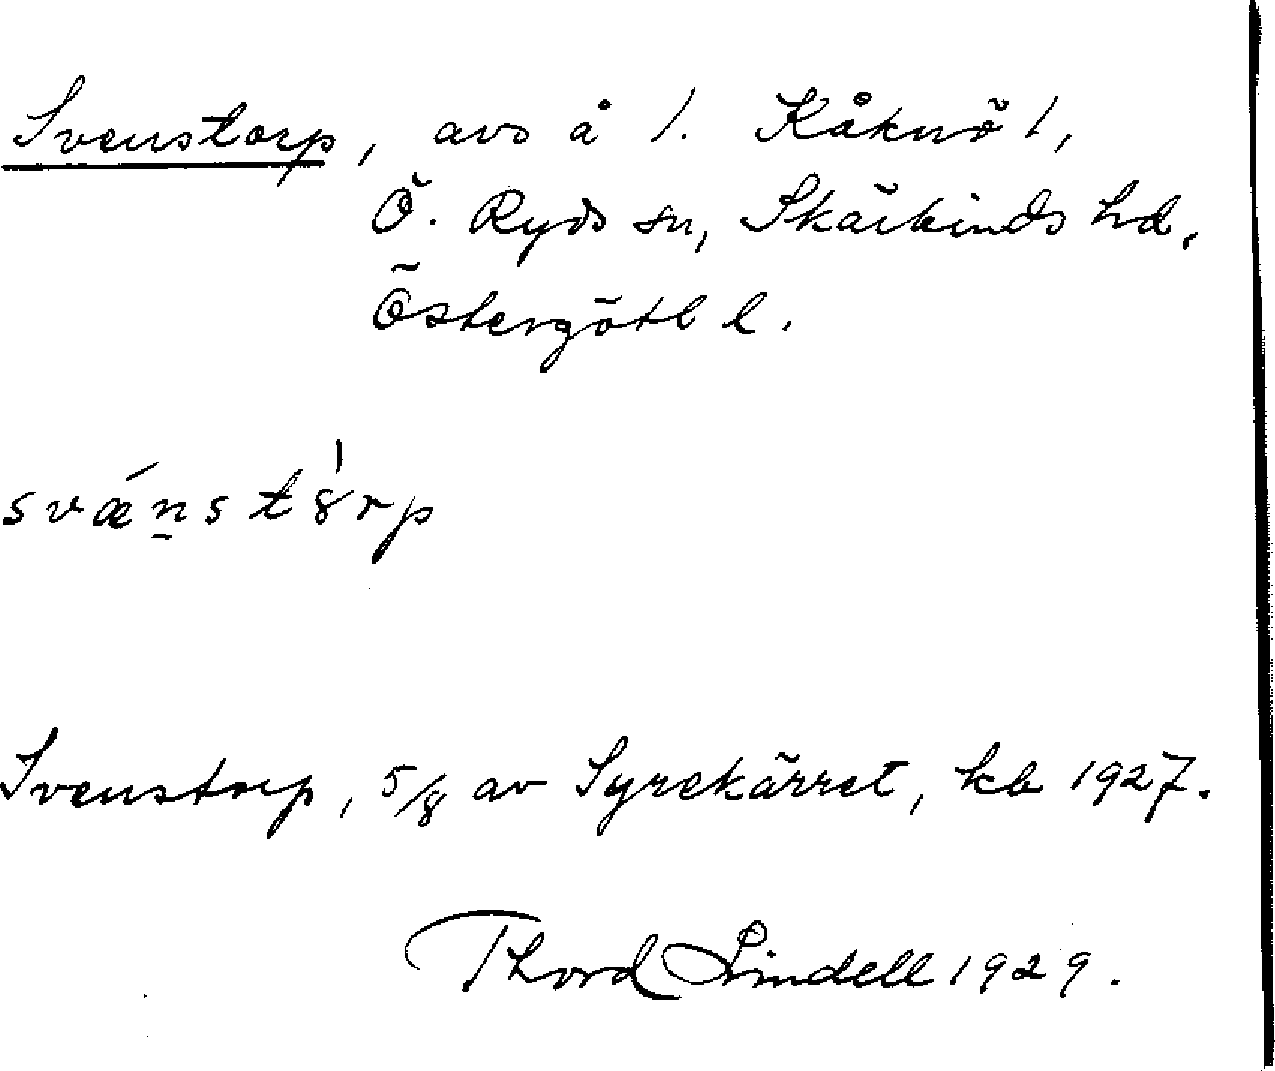 Svenstorp, avs å 1. Kåknö 1,
Ö. Ryds sn, Skärkinds hd,
Östergötl l.
svǽn̠st8̍rp
Svenstorp, 5/8 av Syrekärret, kb 1927.
Thord Lindell 1929.